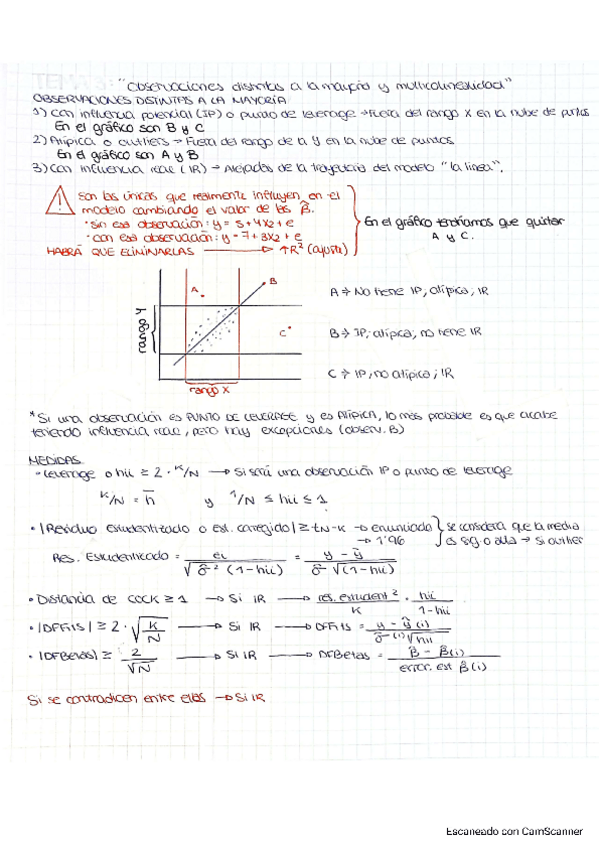 "Observaciones distintas a la mayoría y multicolinealidad"
OBSERVACIONES DISTINTAS A LA MAYORÍA
1) Con influencia potencial (IP) o punto de leverage → Fuera del rango X en la nube de puntos
En el gráfico son B y C
2) Atípica o outliers → Fuera del rango de la Y en la nube de puntos
En el gráfico son A y B
3) Con influencia real (IR) → Alejadas de la trayectoria del modelo "la línea".
Son las únicas que realmente influyen en el
modelo cambiando el valor de las β̂.
· sin esa observación: y = 5+4x2+e
· con esa observación: y = 7+3x2+e
HABRÁ QUE ELIMINARLAS → ↑R² (ajuste)
En el gráfico tendríamos que quitar
A y C.
rango Y
A
B
C
rango X
A → No tiene IP, atípica, IR
B → IP, atípica, no tiene IR
C → IP, no atípica, IR
* Si una observación es PUNTO DE LEVERAGE y es ATÍPICA, lo más probable es que acabe
teniendo influencia real, pero hay excepciones (observ. B)
MEDIDAS
· Leverage o hii ≥ 2 · K/N → Si será una observación IP o punto de leverage
K/N = h̄ y 1/N ≤ hii ≤ 1
· |Residuo estudentizado o est. corregido| ≥ tN-K → enunciado
→ 1'96
se considera que la media
es si → si outlier
Res. Estudentizado = ei / √(σ̂² (1-hii)) = y - ŷ / σ̂ √(1-hii)
· Distancia de COCK ≥ 1 → Si IR → res. estudent² / K · hii / 1-hii
· |DFFits| ≥ 2 · √(K/N) → Si IR → DFFits = y - ŷ(i) / σ̂(i)√hii
· |DFBetas| ≥ 2/√N → Si IR → DFBetas = β̂ - β̂(i) / error. est β̂(i)
Si se contradicen entre ellas → Si IR
Escaneado con CamScanner